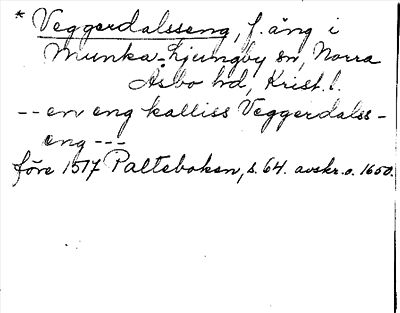 * Veggerdalsseng, f. äng i
Munka-Ljungby sn, Norra
Åsbo hd, Krist. l.
-- en eng kalliss Veggerdalss-
eng ---
före 1517 Palteboken, s. 64. avskr. o. 1650.